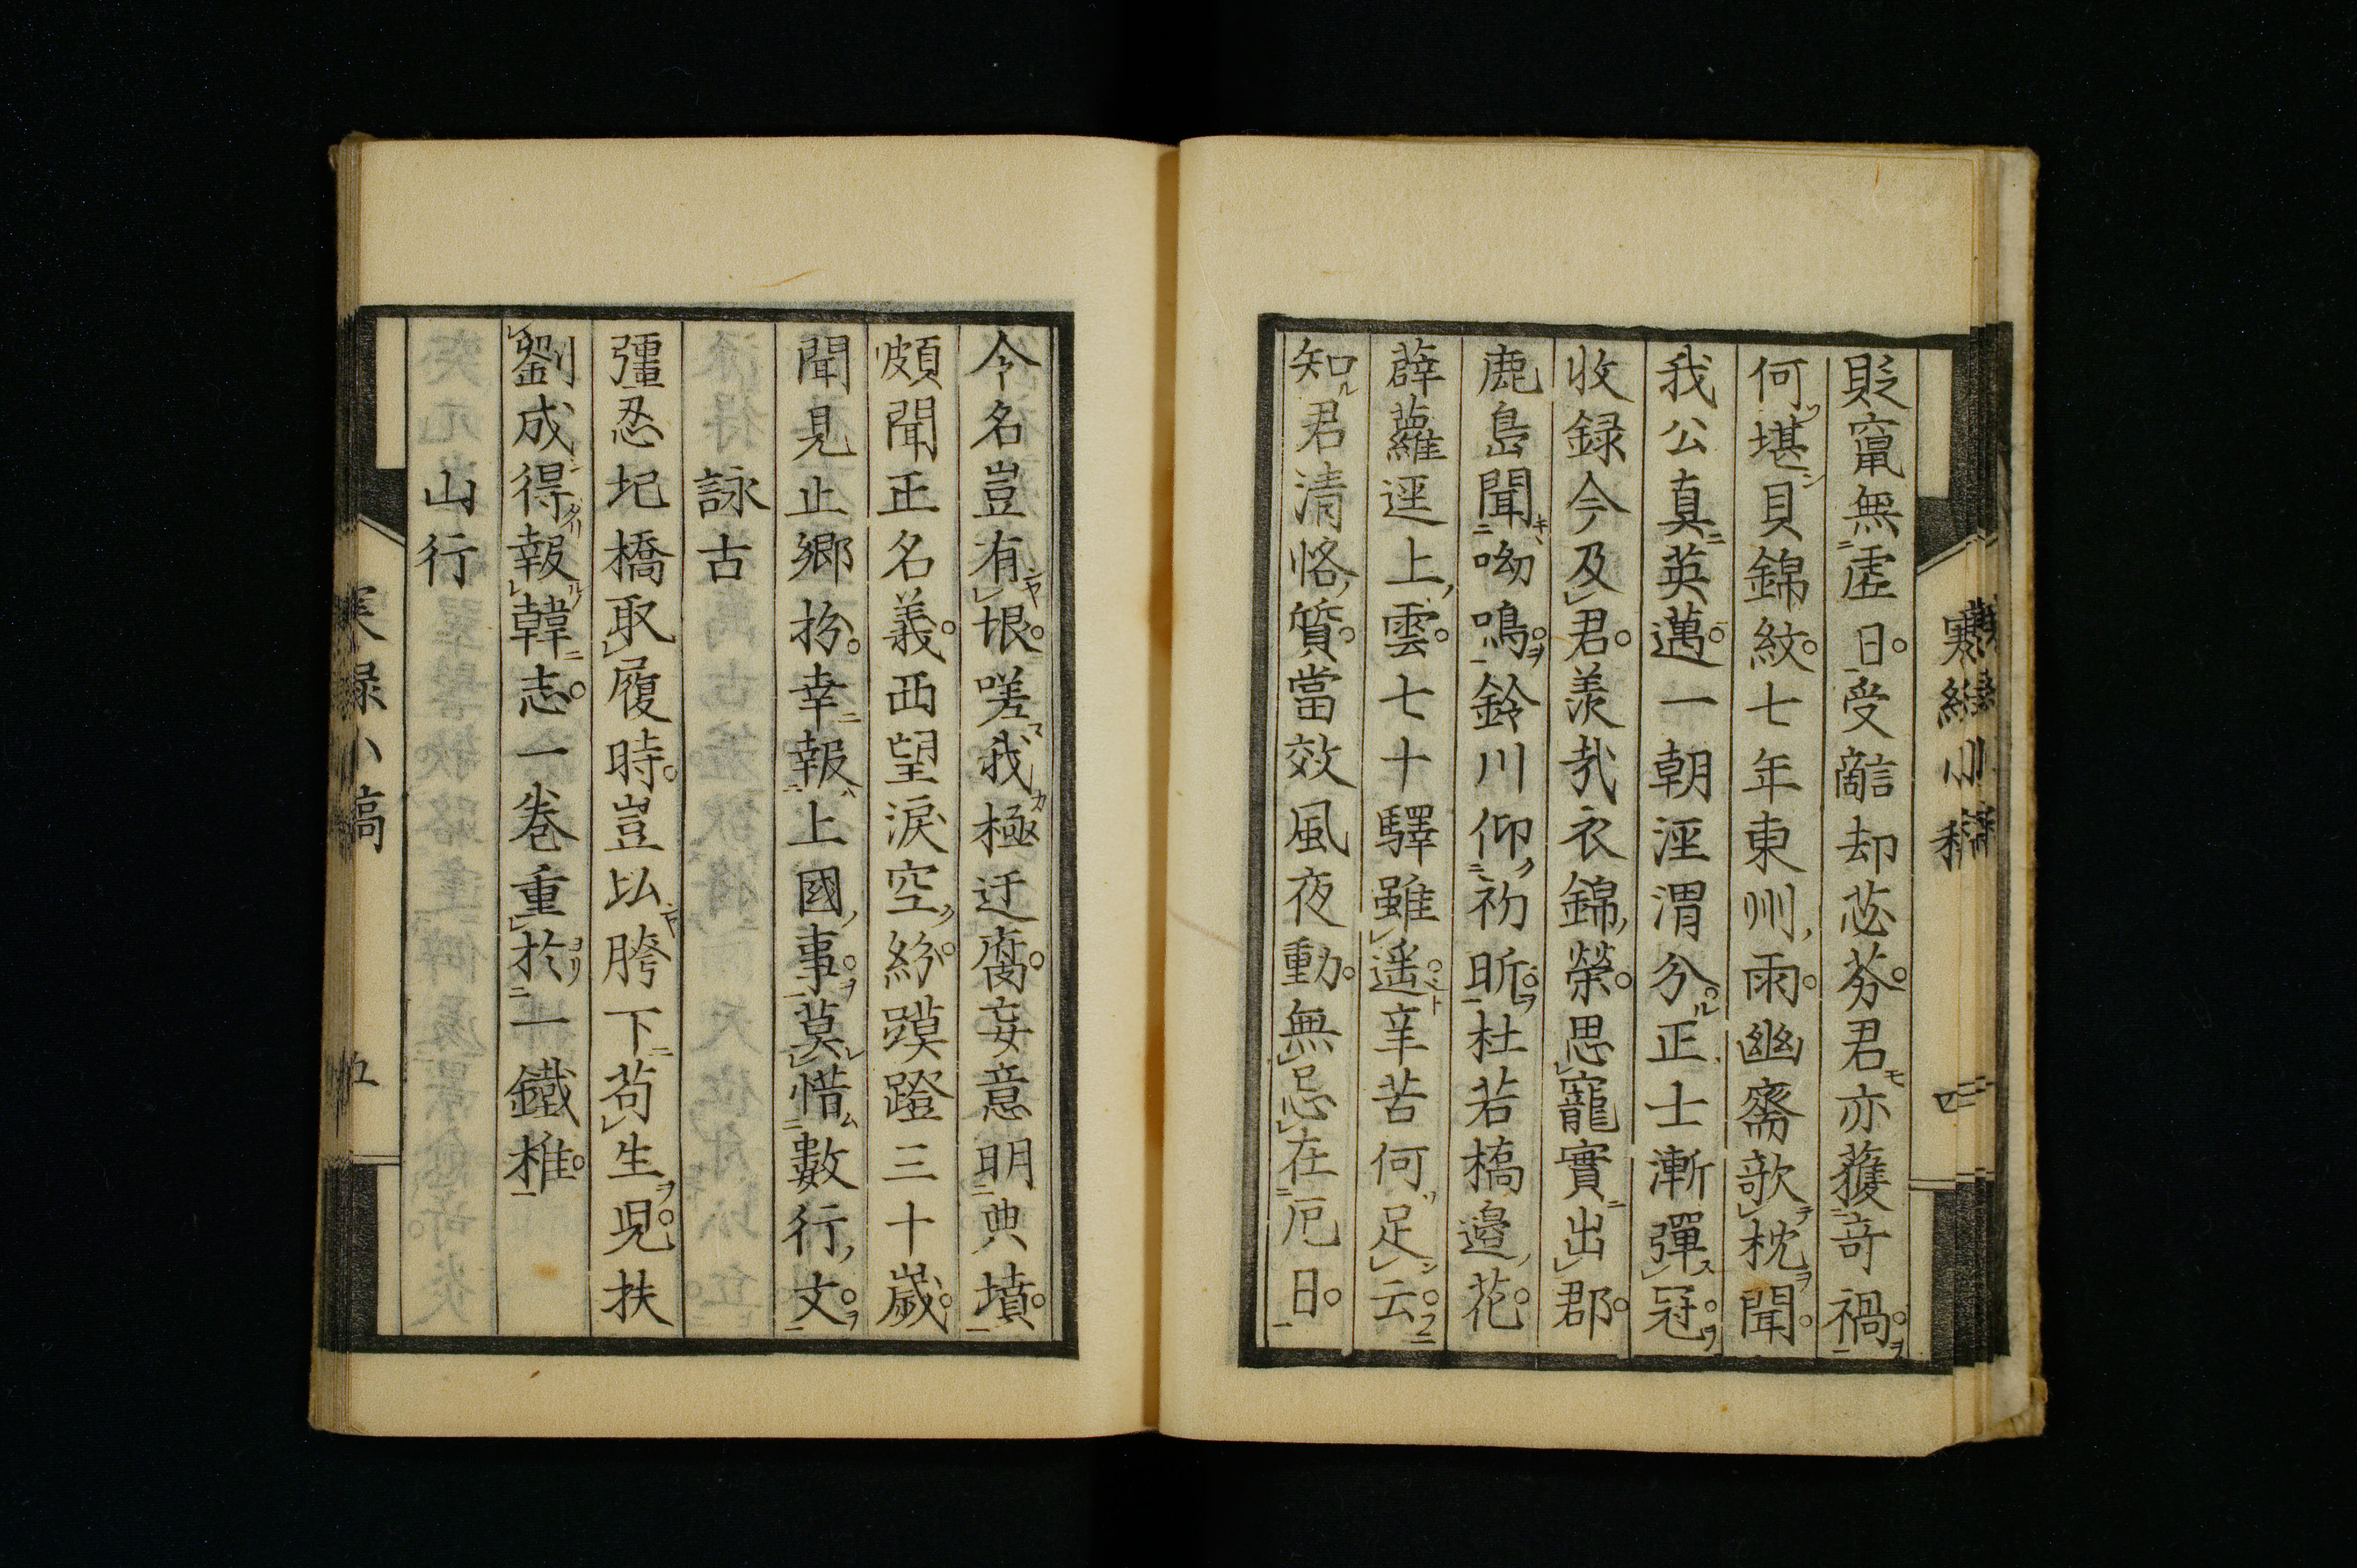 貶竄無虛日受謠却苾芬君亦獲竒禍
何堪貝錦紋七年東州雨幽齋歌枕聞
我公真英邁一朝涇渭分正士漸彈冠
收録今及君羨哉衣錦榮思寵實出郡
鹿島聞呦鳴鈴川仰初昕杜若橋邉花
薜蘿逕上雲七十驛雖遥辛苦何足云
知君清恪質當效風夜動無忌在厄日
今名豈有垠嗟我極迂腐妄意明典墳
頗聞正名義西望淚空紛蹼蹬三十歲
聞見止鄉枌幸報上國事莫惜數行文
詠古
彊忍圯橋取履時豈以胯下苟生兒扶
劉成得報韓志一卷重於一鐵椎
山行